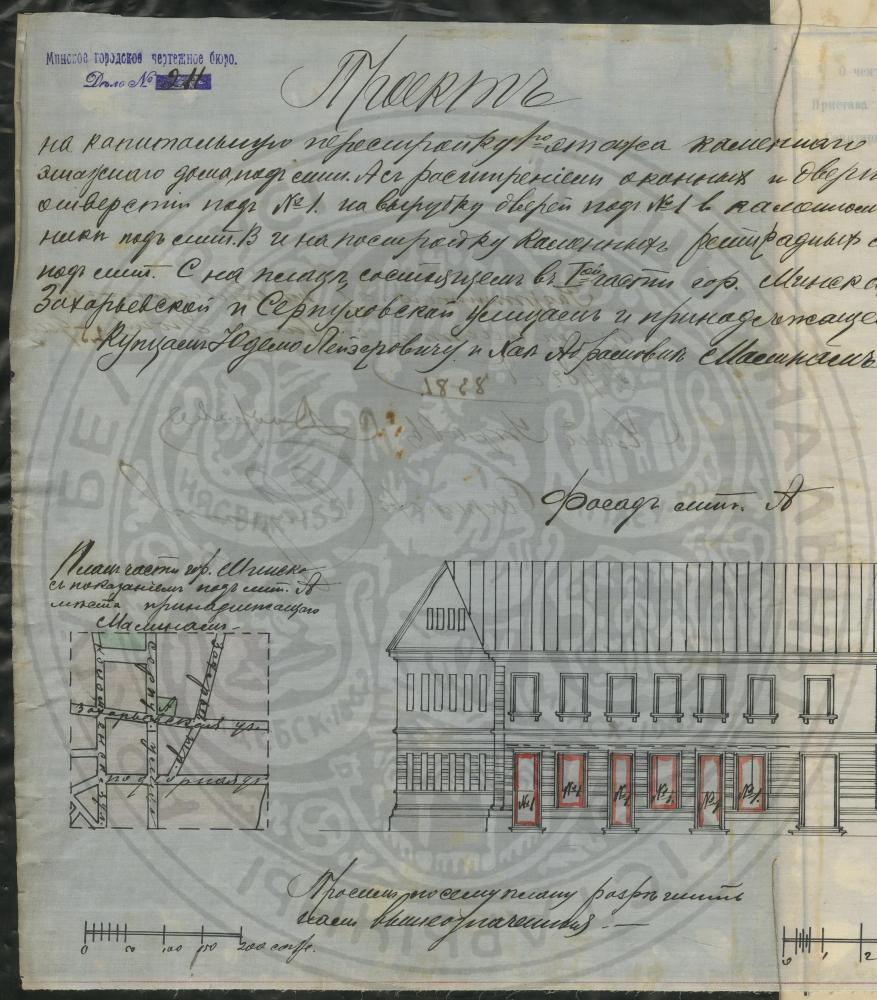 Минское городское чертежное бюро.
Дѣло № 211
Проектъ
на капитальную перестройку 1го этажа каменнаго
этажнаго дома, подъ лит. А съ расширеніемъ оконныхъ и дверн
отверстій подъ №1. на вырубку дверей подъ №1 в
подъ лит. В и на постройку каменныхъ ретирадныхъ
подъ лит. С на плацѣ, состоящемъ въ Iой части гор. Минска
Захарьевской и Серпуховской улицамъ и принадлежаще
Купцамъ Юделю Лейзеровичу и Хаѣ Абрамовнѣ Малинамъ
8381.
Фасадъ лит. А
Планъ части гор. Минска
съ показаніемъ подъ лит. А
мѣста принадлежащаго
Малинамъ
Захарьевская ул.
Серпуховск
А
подгорная ул
№1 №1 №1 №1 №1 №1.
Просимъ по сему плану разрѣшить
намъ вышеозначенная.
0 50 100 150 200 саж.
0 1 2
НЯСВІЖ-155